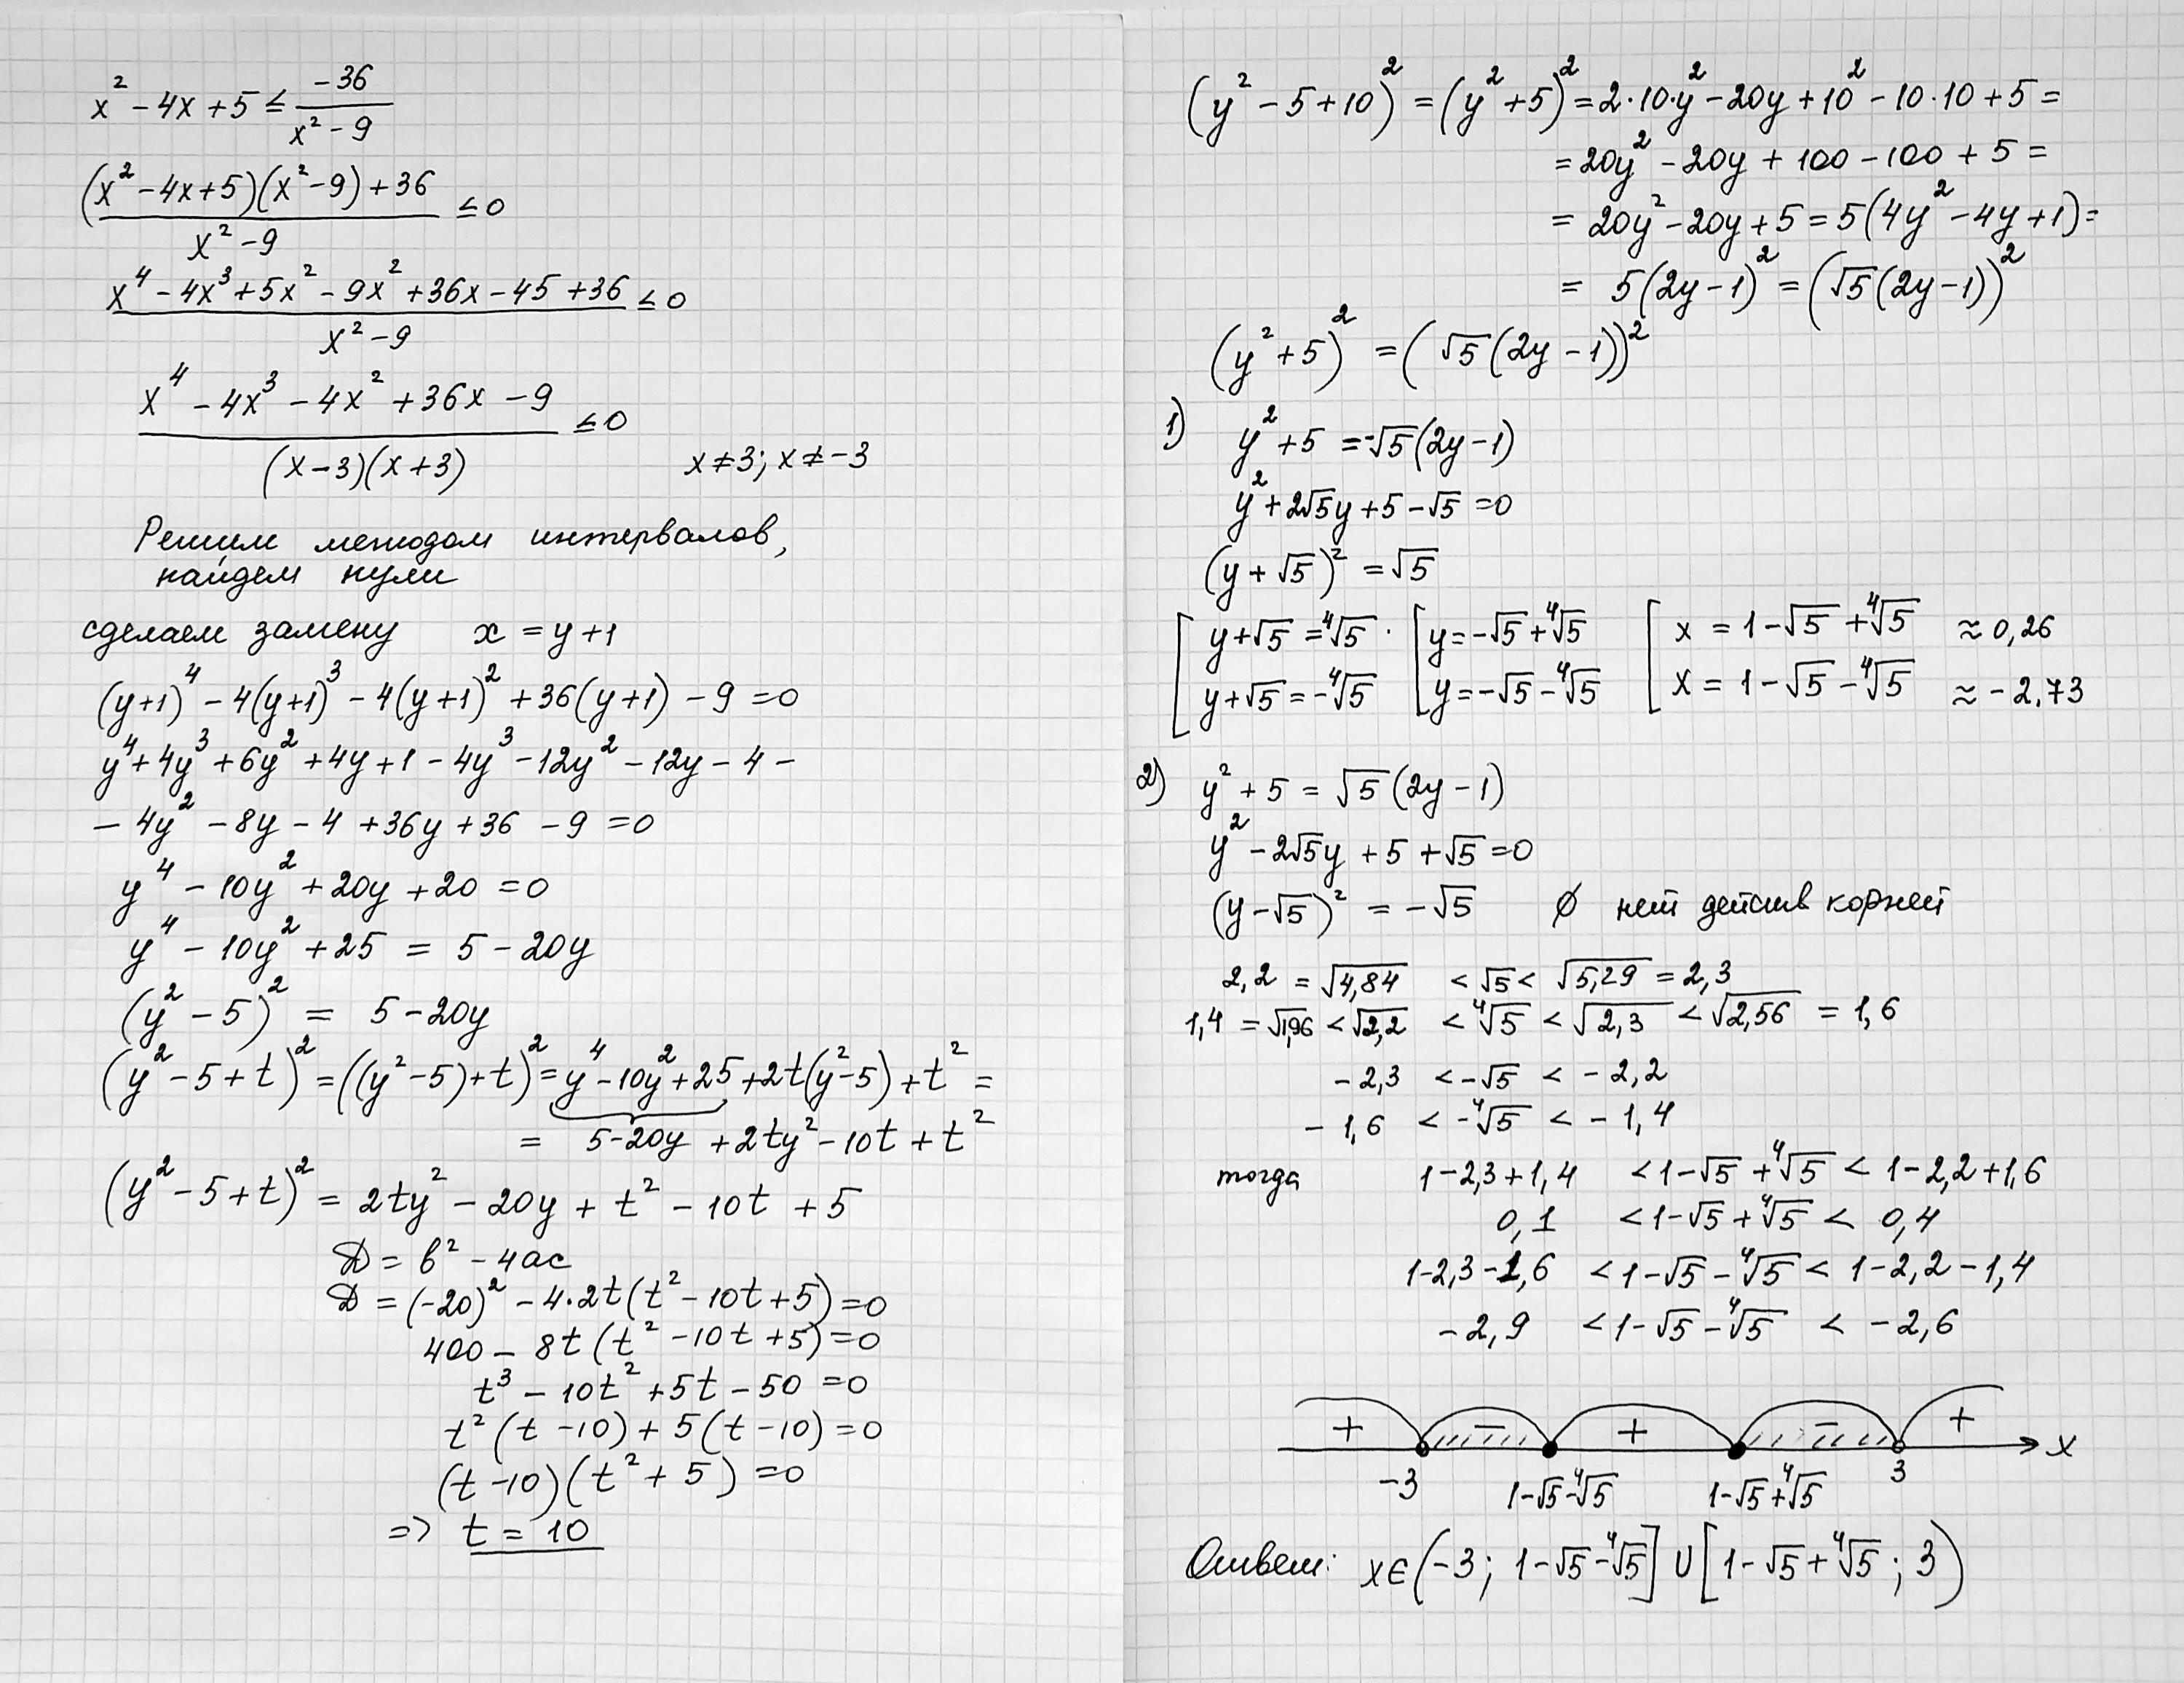 x² - 4x + 5 ≤ -36/(x² - 9)
((x² - 4x + 5)(x² - 9) + 36)/(x² - 9) ≤ 0
(x⁴ - 4x³ + 5x² - 9x² + 36x - 45 + 36)/(x² - 9) ≤ 0
(x⁴ - 4x³ - 4x² + 36x - 9)/((x - 3)(x + 3)) ≤ 0    x ≠ 3; x ≠ -3
Решим методом интервалов,
найдем нули
сделаем замену x = y + 1
(y+1)⁴ - 4(y+1)³ - 4(y+1)² + 36(y+1) - 9 = 0
y⁴ + 4y³ + 6y² + 4y + 1 - 4y³ - 12y² - 12y - 4 -
- 4y² - 8y - 4 + 36y + 36 - 9 = 0
y⁴ - 10y² + 20y + 20 = 0
y⁴ - 10y² + 25 = 5 - 20y
(y² - 5)² = 5 - 20y
(y² - 5 + t)² = ((y² - 5) + t)² = y⁴ - 10y² + 25 + 2t(y² - 5) + t² =
= 5 - 20y + 2ty² - 10t + t²
(y² - 5 + t)² = 2ty² - 20y + t² - 10t + 5
D = b² - 4ac
D = (-20)² - 4·2t(t² - 10t + 5) = 0
400 - 8t(t² - 10t + 5) = 0
t³ - 10t² + 5t - 50 = 0
t²(t - 10) + 5(t - 10) = 0
(t - 10)(t² + 5) = 0
=> t = 10
(y² - 5 + 10)² = (y² + 5)² = 2·10·y² - 20y + 10² - 10·10 + 5 =
= 20y² - 20y + 100 - 100 + 5 =
= 20y² - 20y + 5 = 5(4y² - 4y + 1) =
= 5(2y - 1)² = (√5(2y - 1))²
(y² + 5)² = (√5(2y - 1))²
1) y² + 5 = -√5(2y - 1)
y² + 2√5y + 5 - √5 = 0
(y + √5)² = √5
[ y + √5 = ⁴√5 · [ y = -√5 + ⁴√5 [ x = 1 - √5 + ⁴√5 ≈ 0,26
y + √5 = -⁴√5 y = -√5 - ⁴√5 x = 1 - √5 - ⁴√5 ≈ -2,73
2) y² + 5 = √5(2y - 1)
y² - 2√5y + 5 + √5 = 0
(y - √5)² = -√5 ∅ нет действ корней
2,2 = √4,84 < √5 < √5,29 = 2,3
1,4 = √1,96 < √2,2 < ⁴√5 < √2,3 < √2,56 = 1,6
-2,3 < -√5 < -2,2
-1,6 < -⁴√5 < -1,4
тогда 1 - 2,3 + 1,4 < 1 - √5 + ⁴√5 < 1 - 2,2 + 1,6
0,1 < 1 - √5 + ⁴√5 < 0,4
1 - 2,3 - 1,6 < 1 - √5 - ⁴√5 < 1 - 2,2 - 1,4
-2,9 < 1 - √5 - ⁴√5 < -2,6
+ - + - + x
-3 1-√5-⁴√5 1-√5+⁴√5 3
Ответ: x ∈ (-3; 1 - √5 - ⁴√5] ∪ [1 - √5 + ⁴√5; 3)